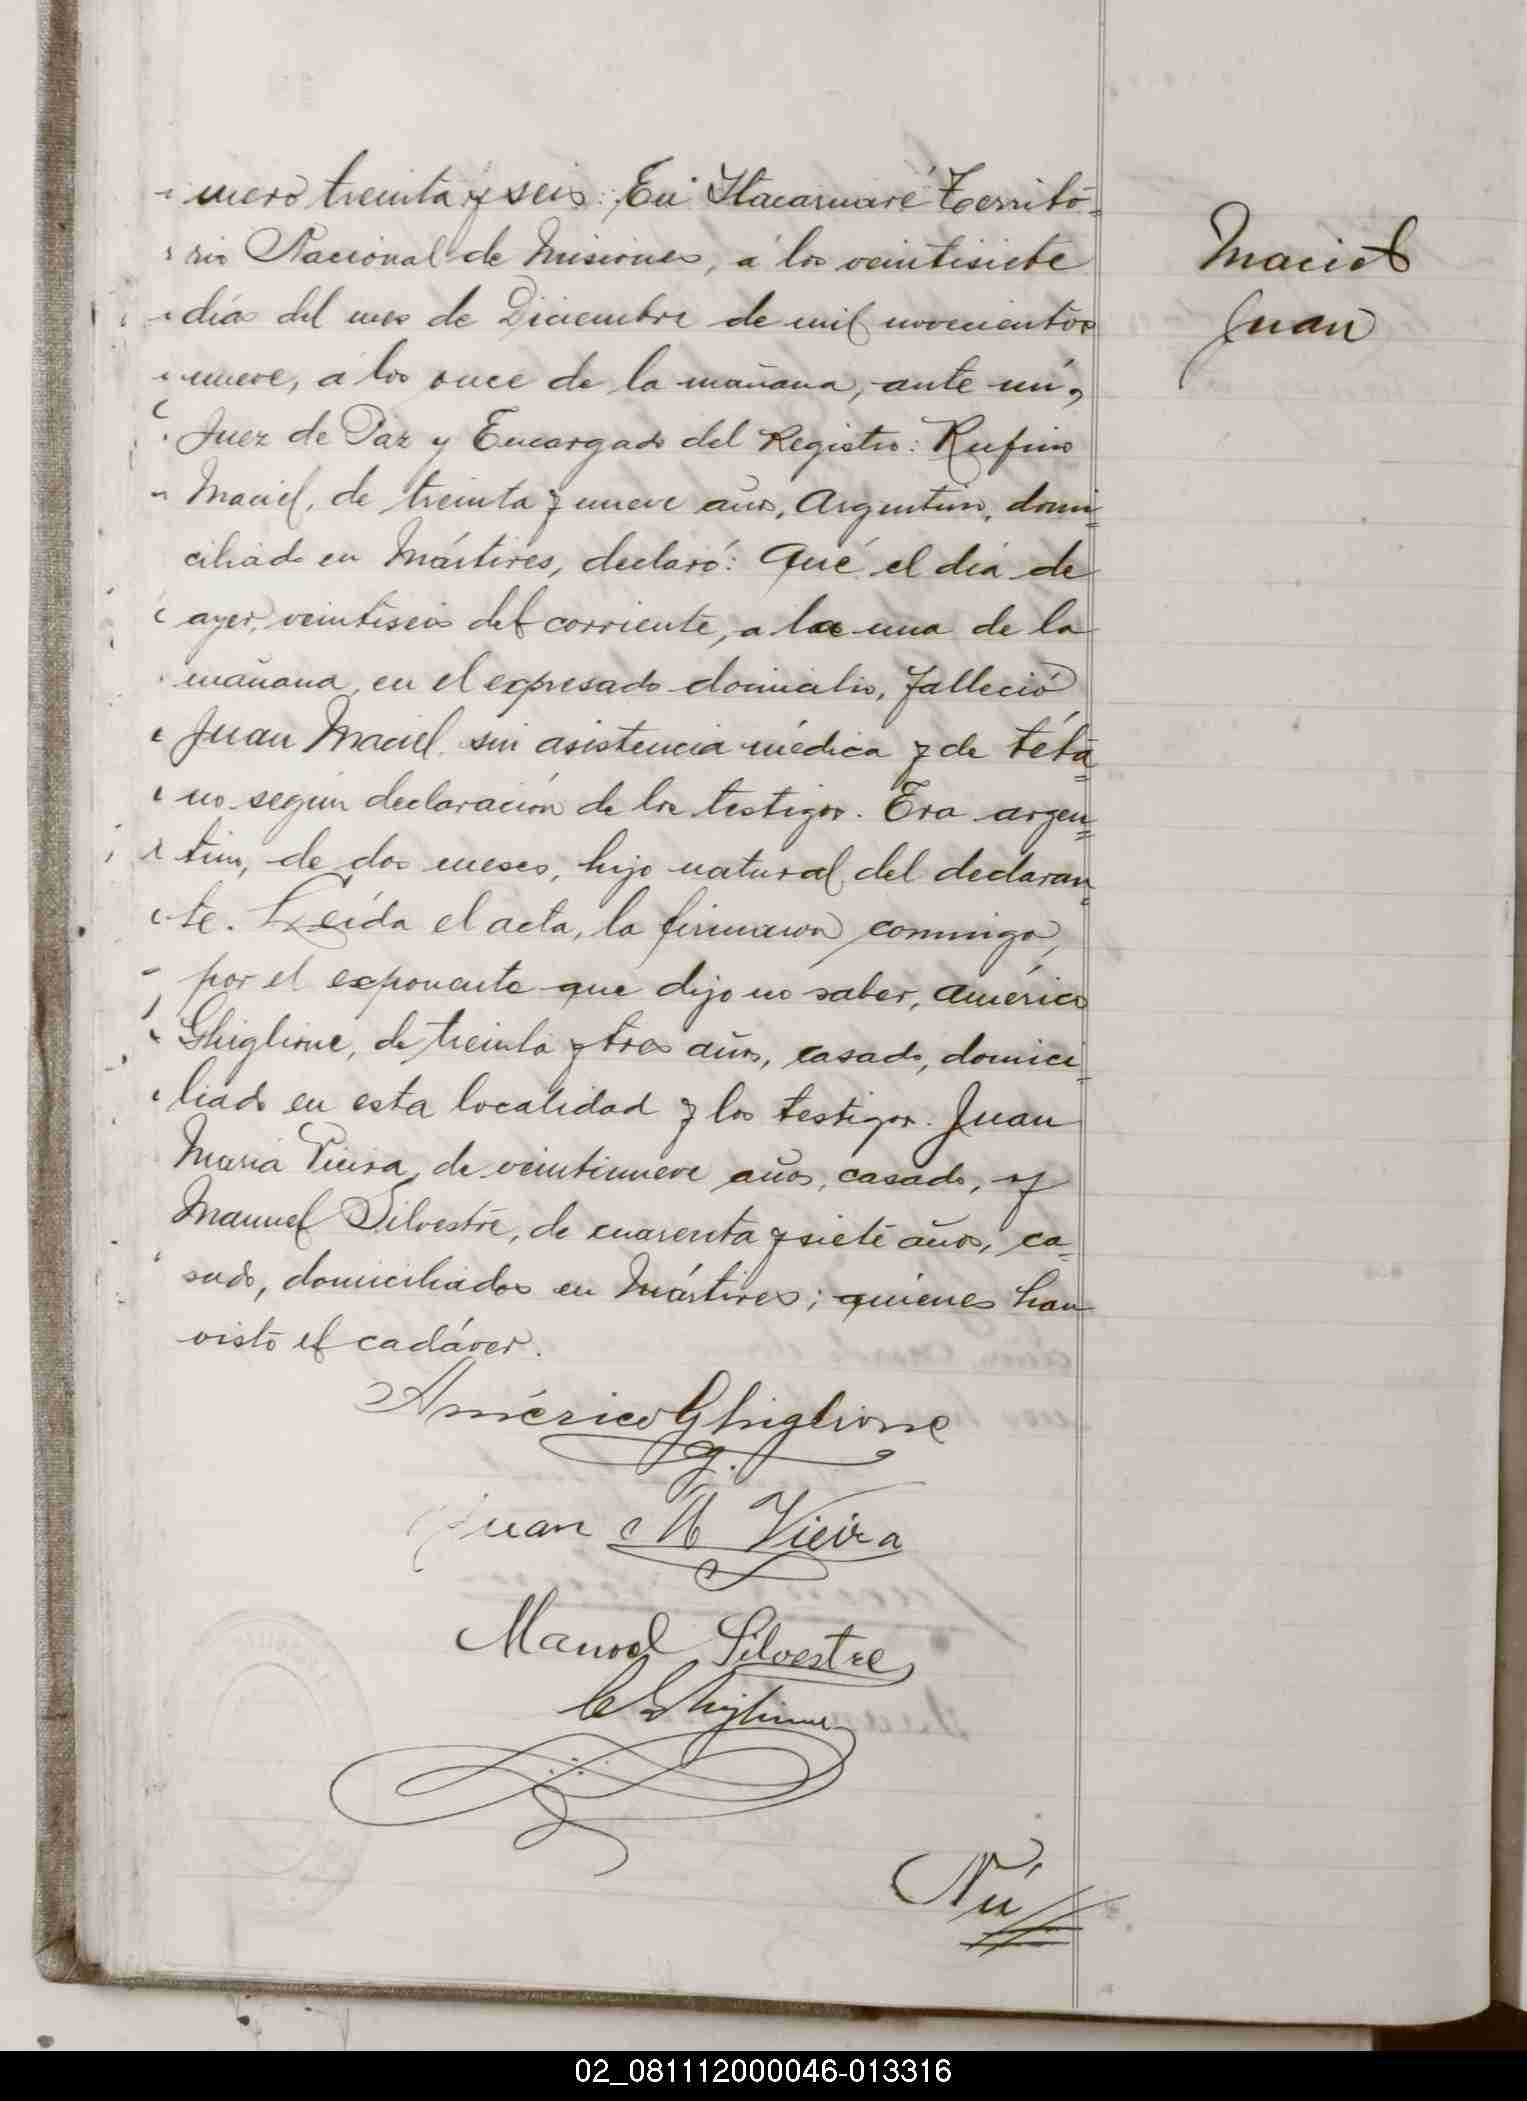 mero treinta y seis: En Itacaruaré Territo=
rio Nacional de Misiones, á los veintisiete
días del mes de Diciembre de mil novecientos
nueve, á las once de la mañana, ante mí,
Juez de Paz y Encargado del Registro: Rufino
Maciel, de treinta y nueve años, Argentino, domi=
ciliado en Mártires, declaró: Qué el día de
ayer, veintiseis del corriente, a la una de la
mañana, en el expresado domicilio, falleció
Juan Maciel sin asistencia médica y de téta=
no según declaración de los testigos. Era argen=
tino, de dos meses, hijo natural del declaran=
te. Leída el acta, la firmaron conmigo,
por el exponente que dijo no saber, Américo
Ghiglione, de treinta y tres años, casado, domici=
liado en esta localidad y los testigos. Juan
María Vieira, de veintinueve años, casado, y
Manuel Silvestre, de cuarenta y siete años, ca=
sado, domiciliados en Mártires; quiénes han
visto el cadáver.
Maciel
Juan
Américo Ghiglione
Juan M Vieira
Manoel Silvestre
C Ghiglione
Nú
02_081112000046-013316